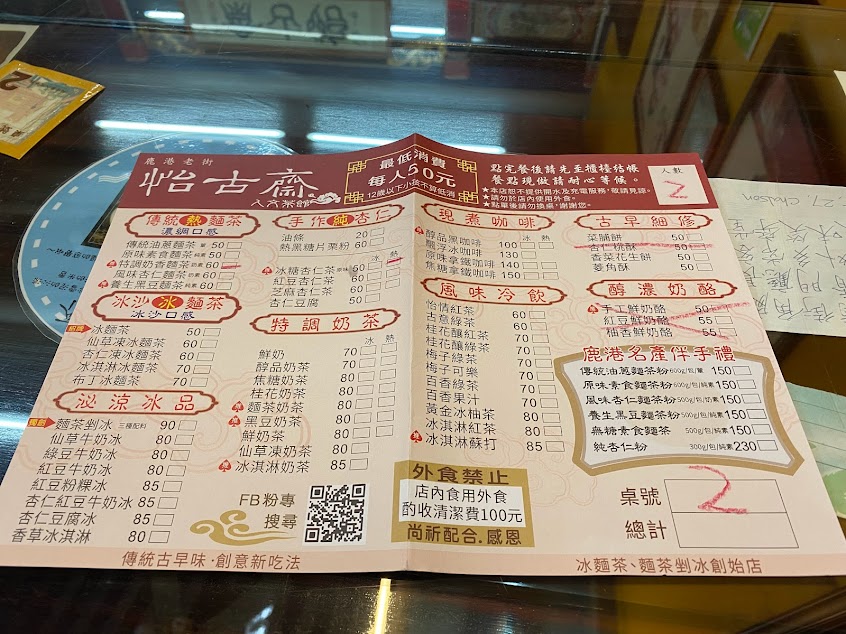 鹿港老街
怡古齋
人文茶館
最低消費
每人50元
12歲以下小孩不算低消
點完餐後請先至櫃檯結帳
餐點現做請耐心等候。
★本店恕不提供開水及充電服務,敬請見諒。
★請勿於店內使用外食。
★點單後請勿換桌,謝謝您。
人數
2
傳統熱麵茶
濃綢口感
傳統油蔥麵茶 葷 50
原味素食麵茶 純素 50
特調奶香麵茶 奶素 60
風味杏仁麵茶 奶素 60
養生黑豆麵茶 純素 60
冰沙冰麵茶
冰沙口感
冰麵茶 50
仙草凍冰麵茶 60
杏仁凍冰麵茶 60
冰淇淋冰麵茶 70
布丁冰麵茶 70
沁涼冰品
麵茶剉冰 三種配料 90
仙草牛奶冰 80
綠豆牛奶冰 80
紅豆牛奶冰 80
紅豆粉粿冰 85
杏仁紅豆牛奶冰 85
杏仁豆腐冰 85
香草冰淇淋 80
手作純杏仁
油條 20
熱黑糖片栗粉 60
冰 熱
冰糖杏仁茶 原味 50
紅豆杏仁茶 60
芝麻杏仁茶 60
杏仁豆腐 50
特調奶茶
冰 熱
鮮奶 70
醇品奶茶 70
焦糖奶茶 80
桂花奶茶 80
麵茶奶茶 80
黑豆奶茶 80
鮮奶茶 80
仙草凍奶茶 80
冰淇淋奶茶 85
FB粉專
搜尋
現煮咖啡
冰 熱
醇品黑咖啡 100
飄浮冰咖啡 130
原味拿鐵咖啡 140
焦糖拿鐵咖啡 150
風味冷飲
怡情紅茶 60
古意綠茶 60
桂花釀紅茶 70
桂花釀綠茶 70
梅子綠茶 70
梅子可樂 70
百香綠茶 70
百香果汁 70
黃金冰柚茶 80
冰淇淋紅茶 80
冰淇淋蘇打 85
外食禁止
店內食用外食
酌收清潔費100元
尚祈配合.感恩
古早細修
菜脯餅 50
杏仁桃酥 50
香菜花生餅 50
菱角酥 50
醇濃奶酪
手工鮮奶酪 50
紅豆鮮奶酪 55
柚香鮮奶酪 55
鹿港名產伴手禮
傳統油蔥麵茶粉 600g/包/葷 150
原味素食麵茶粉 600g/包/純素 150
風味杏仁麵茶粉 500g/包/奶素 150
養生黑豆麵茶粉 500g/包/純素 150
無糖素食麵茶 500g/包/純素 150
純杏仁粉 300g/包/純素 230
桌號 2
總計
傳統古早味·創意新吃法
冰麵茶、麵茶剉冰創始店